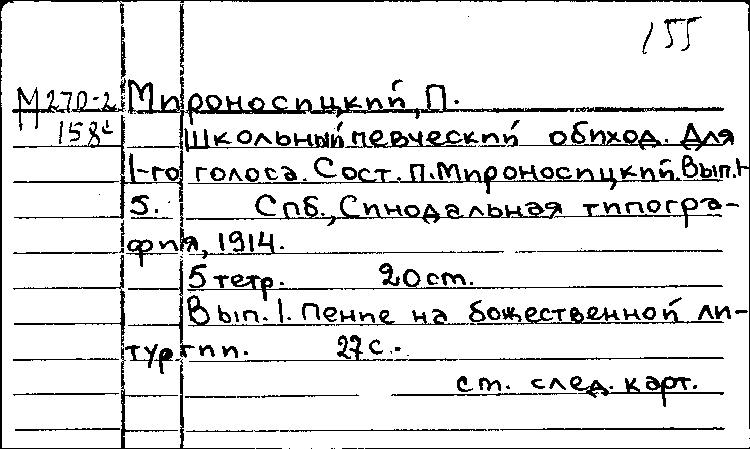 155
М270-2 Мироносицкий, П.
158с Школьный певческий обиход. Для
1-го голоса. Сост. П. Мироносицкий. Вып. 1-
5. Спб., Синодальная типогра-
фия, 1914.
5 тетр. 20 ст.
Вып. 1. Пение на божественной ли-
тургии. 27 с.-
ст. след. карт.